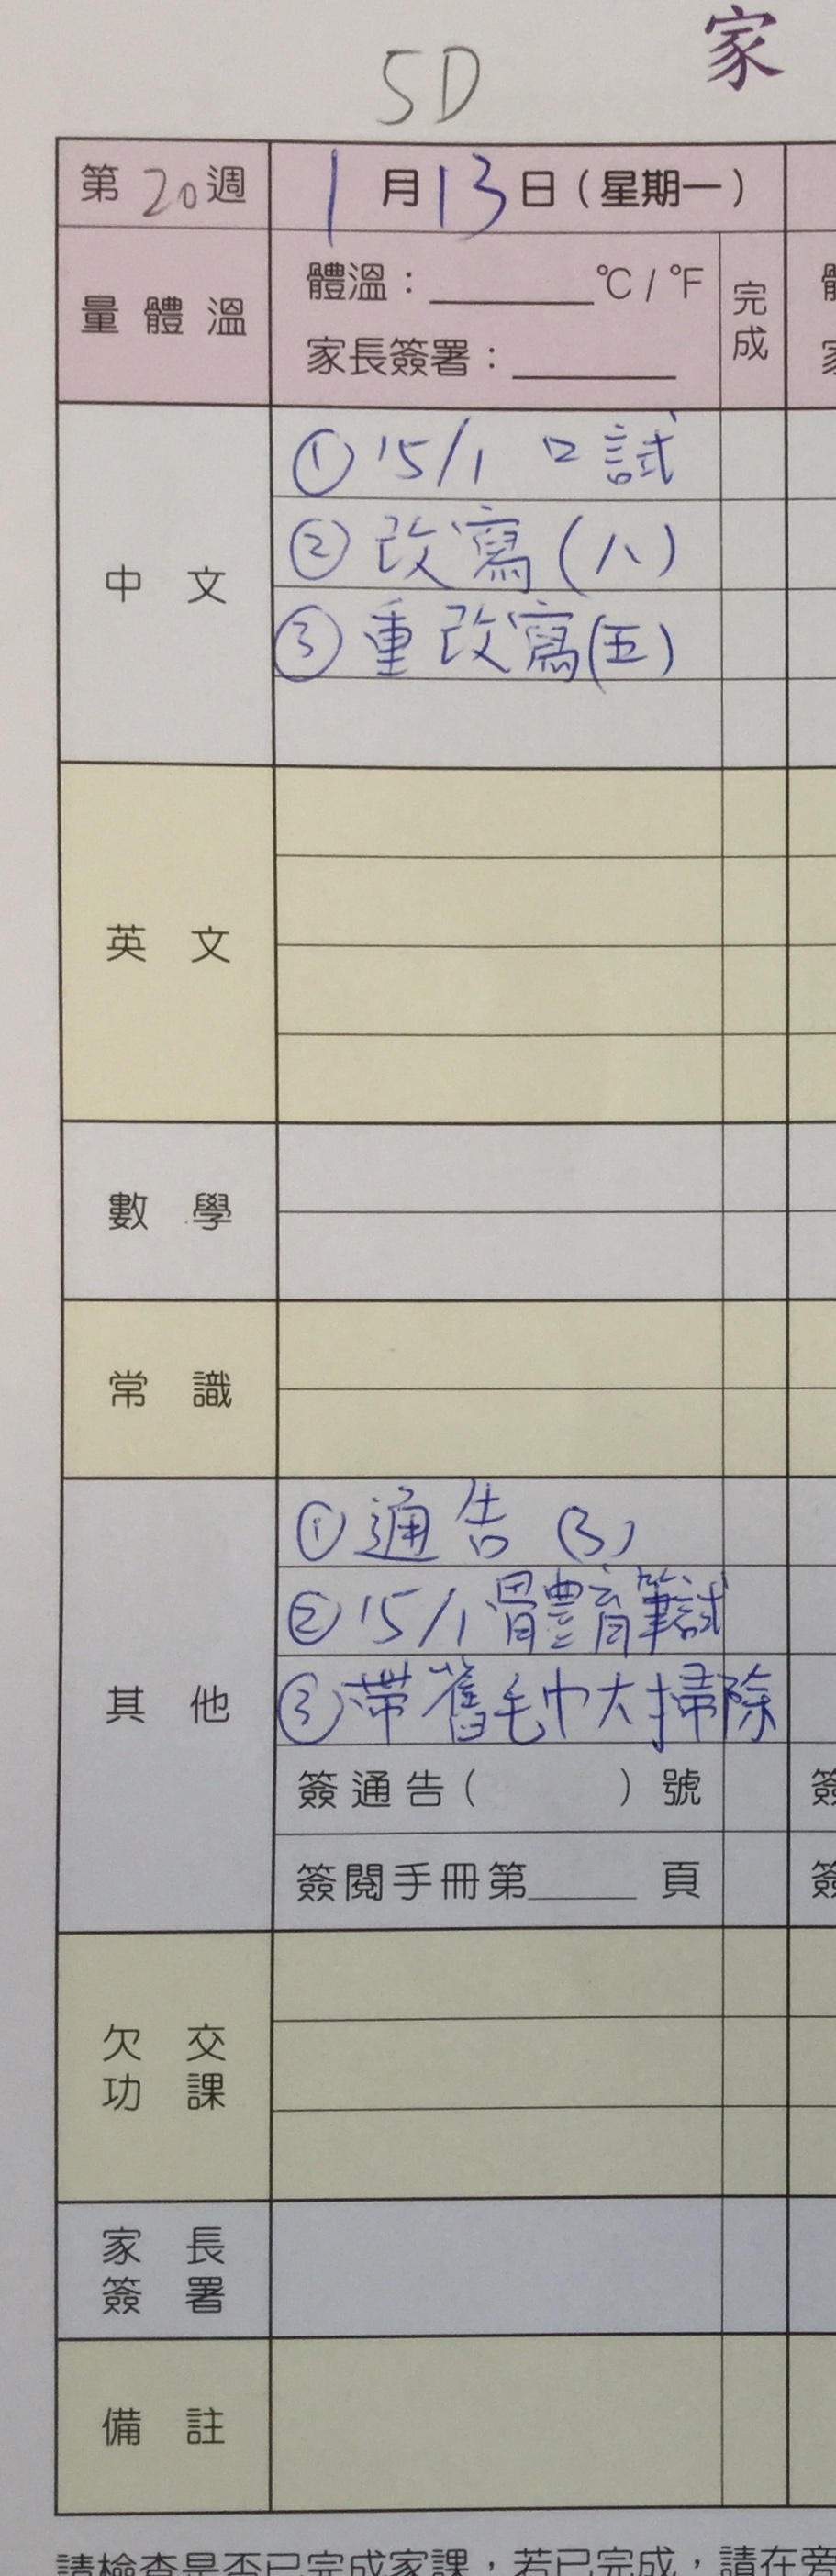 家
5D
第20週 1月13日（星期一）
量體溫 體溫：______℃/℉ 完成
家長簽署：______
中文
①15/1 口試
②改寫(八)
③重改寫(五)
英文
數學
常識
其他
①通告(3)
②15/1體育筆試
③帶舊毛巾大掃除
簽通告（ ）號 簽
簽閱手冊第____頁 簽
欠交功課
家長簽署
備註
請檢查是否已完成家課，若已完成，請在旁